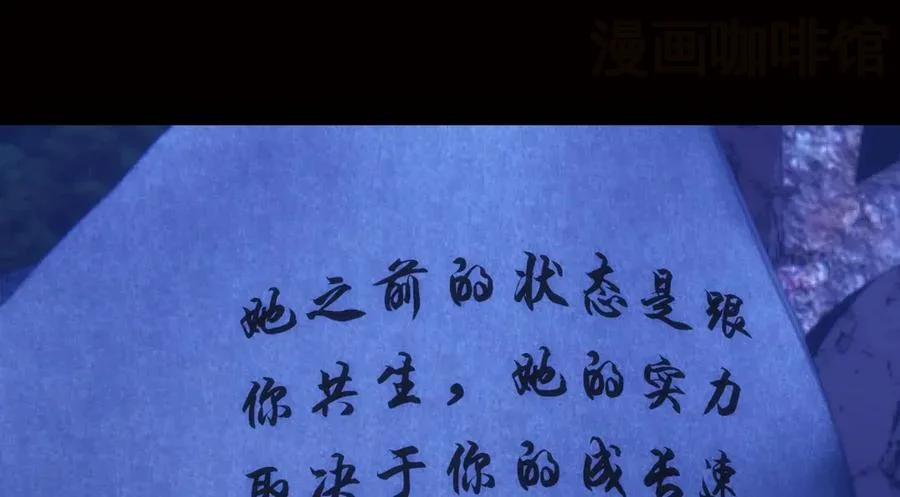 漫画咖啡馆
她之前的状态是跟
你共生，她的实力
取决于你的成长速